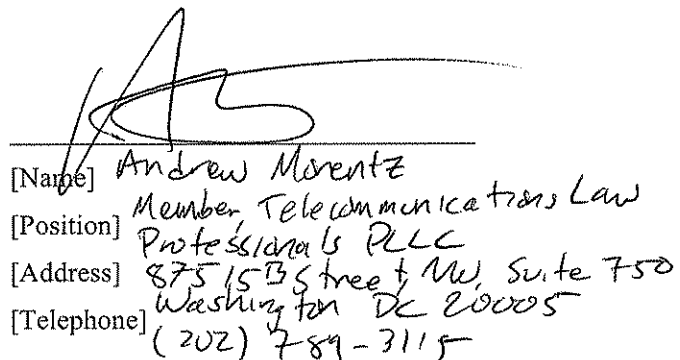 [Name] Andrew Morentz
[Position] Member, Telecommunications Law
Professionals PLLC
[Address] 875 15th Street, NW, Suite 750
Washington DC 20005
[Telephone] (202) 789-3115